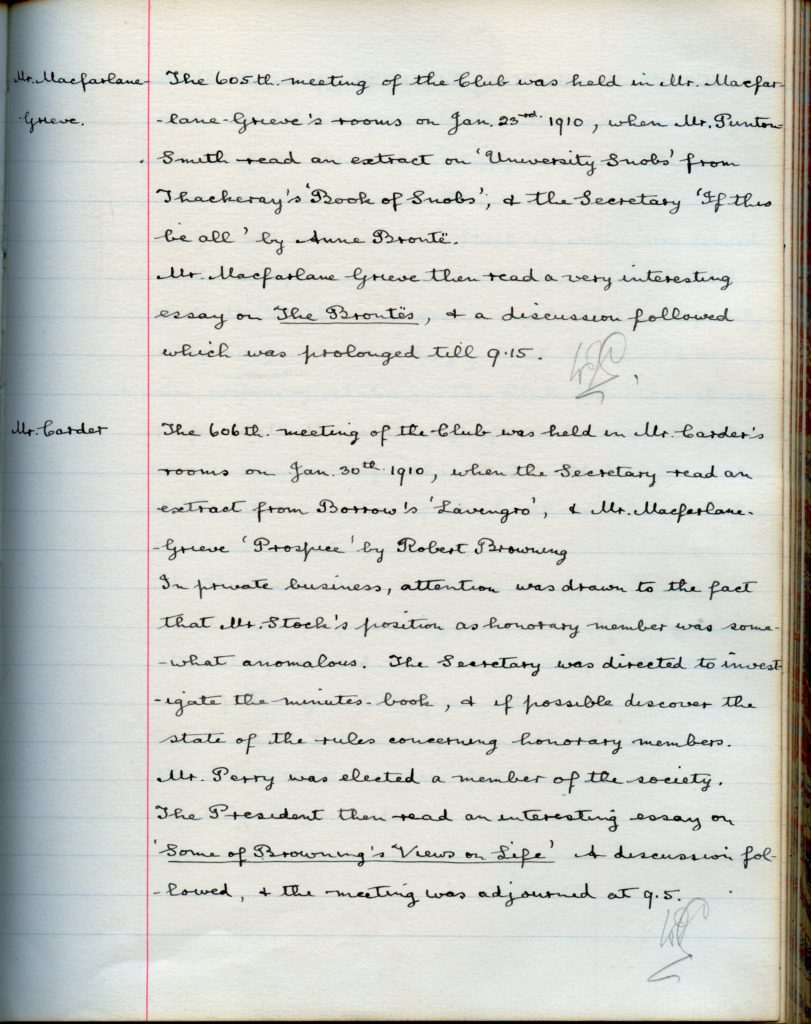 Mr. Macfarlane-
Grieve.
The 605th. meeting of the Club was held in Mr. Macfar-
-lane-Grieve's rooms on Jan. 23rd. 1910, when Mr. Punton
Smith read an extract on 'University Snobs' from
Thackeray's 'Book of Snobs'; & the Secretary 'If this
be all' by Anne Brontë.
Mr. Macfarlane Grieve then read a very interesting
essay on The Brontës, & a discussion followed
which was prolonged till 9.15.
Mr. Carder
The 606th. meeting of the Club was held in Mr. Carder's
rooms on Jan. 30th. 1910, when the Secretary read an
extract from Borrow's 'Lavengro', & Mr. Macfarlane-
-Grieve 'Prospice' by Robert Browning
In private business, attention was drawn to the fact
that Mr. Stock's position as honorary member was some-
-what anomalous. The Secretary was directed to invest-
-igate the minutes-book, & if possible discover the
state of the rules concerning honorary members.
Mr. Perry was elected a member of the society.
The President then read an interesting essay on
'Some of Browning's Views on Life' A discussion fol-
-lowed, & the meeting was adjourned at 9.5.